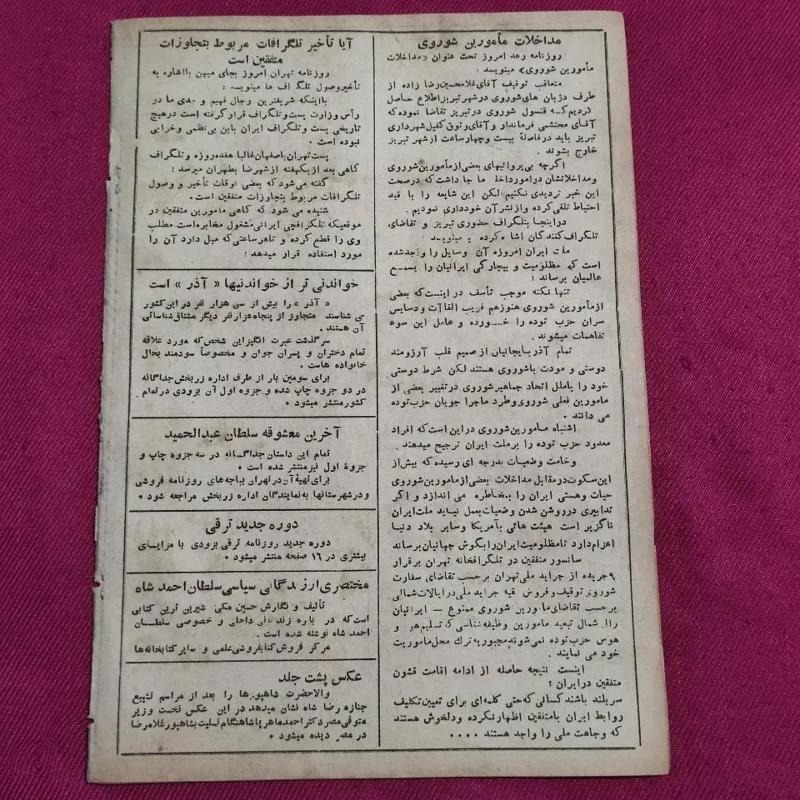 مداخلات مأمورین شوروی
روزنامه رعد امروز تحت عنوان «مداخلات
مأمورین شوروی» مینویسد :
متعاقب توقیف آقای غلامحسین رضا زاده از
طرف دژبان های شوروی در شهر تبریز اطلاع حاصل
کردیم که قنسول شوروی در تبریز تقاضا نموده که
آقای محتشمی فرماندار و آقای وثوق کفیل شهرداری
تبریز باید در فاصلهٔ بیست و چهار ساعت از شهر تبریز
خارج بشوند .
اگرچه بی‌پروائیهای بعضی از مأمورین شوروی
و مداخلاتشان در امور داخلی ما جا داشت که در صحت
این خبر تردیدی نکنیم لکن این شایعه را با قید
احتیاط تلقی کرده و از نشر آن خودداری نمودیم .
در اینجا بتلگراف حضوری تبریز و تقاضای
تلگراف کنندگان اشاره کرده و مینویسد
ملت ایران امروزه آن وسایل را واجد شده
است که مظلومیت و بیچارگی ایرانیان را بسمع
عالمیان برساند ؛
تنها نکته موجب تأسف در اینست که بعضی
از مأمورین شوروی هنوز هم فریب القاآت و دسایس
سران حزب توده را خورده و عامل این سوء
تفاهمات میشوند
تمام آذربایجانیان از صمیم قلب آرزومند
دوستی و مودت با شوروی هستند لکن شرط دوستی
خود را با ملل اتحاد جماهیر شوروی در تغییر بعضی از
مامورین فعلی شوروی و طرد ماجرا جویان حزب توده
می دانند .
اشتباه مأمورین شوروی در این است که افراد
معدود حزب توده را بر ملت ایران ترجیح میدهند .
وخامت وضعیات بدرجه ای رسیده که بیش از
این سکوت در مقابل مداخلات بعضی از مامورین شوروی
حیات و هستی ایران را بمخاطره می اندازد و اگر
تدابیری در روشن شدن وضعیات بعمل نیاید ملت ایران
ناگزیر است هیئت هائی بآمریکا و سایر بلاد دنیا
اعزام دارد تا مظلومیت ایران را بگوش جهانیان برساند
سانسور متفقین در تلگرافخانه تهران برقرار
۹ جریده از جراید ملی تهران بر حسب تقاضای سفارت
شوروی توقیف و فروش بقیه جراید ملی در ایالات شمالی
بر حسب تقاضای مأمورین شوروی ممنوع — ایرانیان
را از شمال تبعید مامورین وظیفه شناسی که تسلیم هوی و
هوس حزب توده نمی‌شوند مجبور به ترک محل ماموریت
خود می نمایند .
اینست نتیجه حاصله از ادامه اقامت قشون
متفقین در ایران ؟
سربلند باشند کسانی که حتی کلمه‌ای برای تعیین تکلیف
روابط ایران با متفقین اظهار نکرده و دلخوش هستند
که وجاهت ملی را واجد هستند . . . .
آیا تأخیر تلگرافات مربوط بتجاوزات
متفقین است
روزنامه تهران امروز بجای میهن با اشاره به
تأخیر وصول تلگراف ها مینویسد :
با اینکه شریفترین رجال فهیم و جدی ما در
رأس وزارت پست و تلگراف قرار گرفته است در هیچ
تاریخی پست و تلگراف ایران باین بی نظمی و خرابی
نبوده است .
پست تهران باصفهان غالبا هفده روزه و تلگراف
گاهی بعد از یکهفته از شهر رضا بطهران میرسد :
گفته می‌شود که بعضی اوقات تأخیر و وصول
تلگرافات مربوط بتجاوزات متفقین است .
شنیده می شود که گاهی مامورین متفقین در
موقعیکه تلگرافچی ایرانی مشغول مخابره است مطلب
وی را قطع کرده و تا هر ساعتی که میل دارد آن را
مورد استفاده قرار میدهد !
خواندنی تر از خواندنیها « آذر » است
« آذر » را بیش از سی هزار نفر در این کشور
می شناسند متجاوز از پنجاه هزار نفر دیگر مشتاق شناسائی
آن هستند .
سرگذشت عبرت انگیز این شخص که مورد علاقه
تمام دختران و پسران جوان و مخصوصاً سودمند بحال
خانواده هاست .
برای سومین بار از طرف اداره زر بخش جداگانه
در دو جزوه چاپ شده و جزوه اول آن بزودی در تمام
کشور منتشر میشود .
آخرین معشوقه سلطان عبدالحمید
تمام این داستان جداگانه در سه جزوه چاپ و
جزوهٔ اول نیز منتشر شده است .
برای تهیهٔ آن در تهران بباجه‌های روزنامه فروشی
و در شهرستانها به نمایندگان اداره زر بخش مراجعه شود .
دوره جدید ترقی
دوره جدید روزنامه ترقی بزودی با مزایای
بیشتری در ۱۶ صفحه منتشر میشود .
مختصری از زندگانی سیاسی سلطان احمد شاه
تألیف و نگارش حسین مکی شیرین ترین کتابی
است که در باره زندگانی داخلی و خصوصی سلطان
احمد شاه نوشته شده است .
مرکز فروش کتابفروشی علمی و سایر کتابخانه‌ها
عکس پشت جلد
والاحضرت شاهپورها را بعد از مراسم تشییع
جنازه رضا شاه نشان میدهد در این عکس نخست وزیر
متوفی مصر دکتر احمد ماهر پاشا هنگام تسلیت بشاهپور غلامرضا
در مصر دیده میشود .